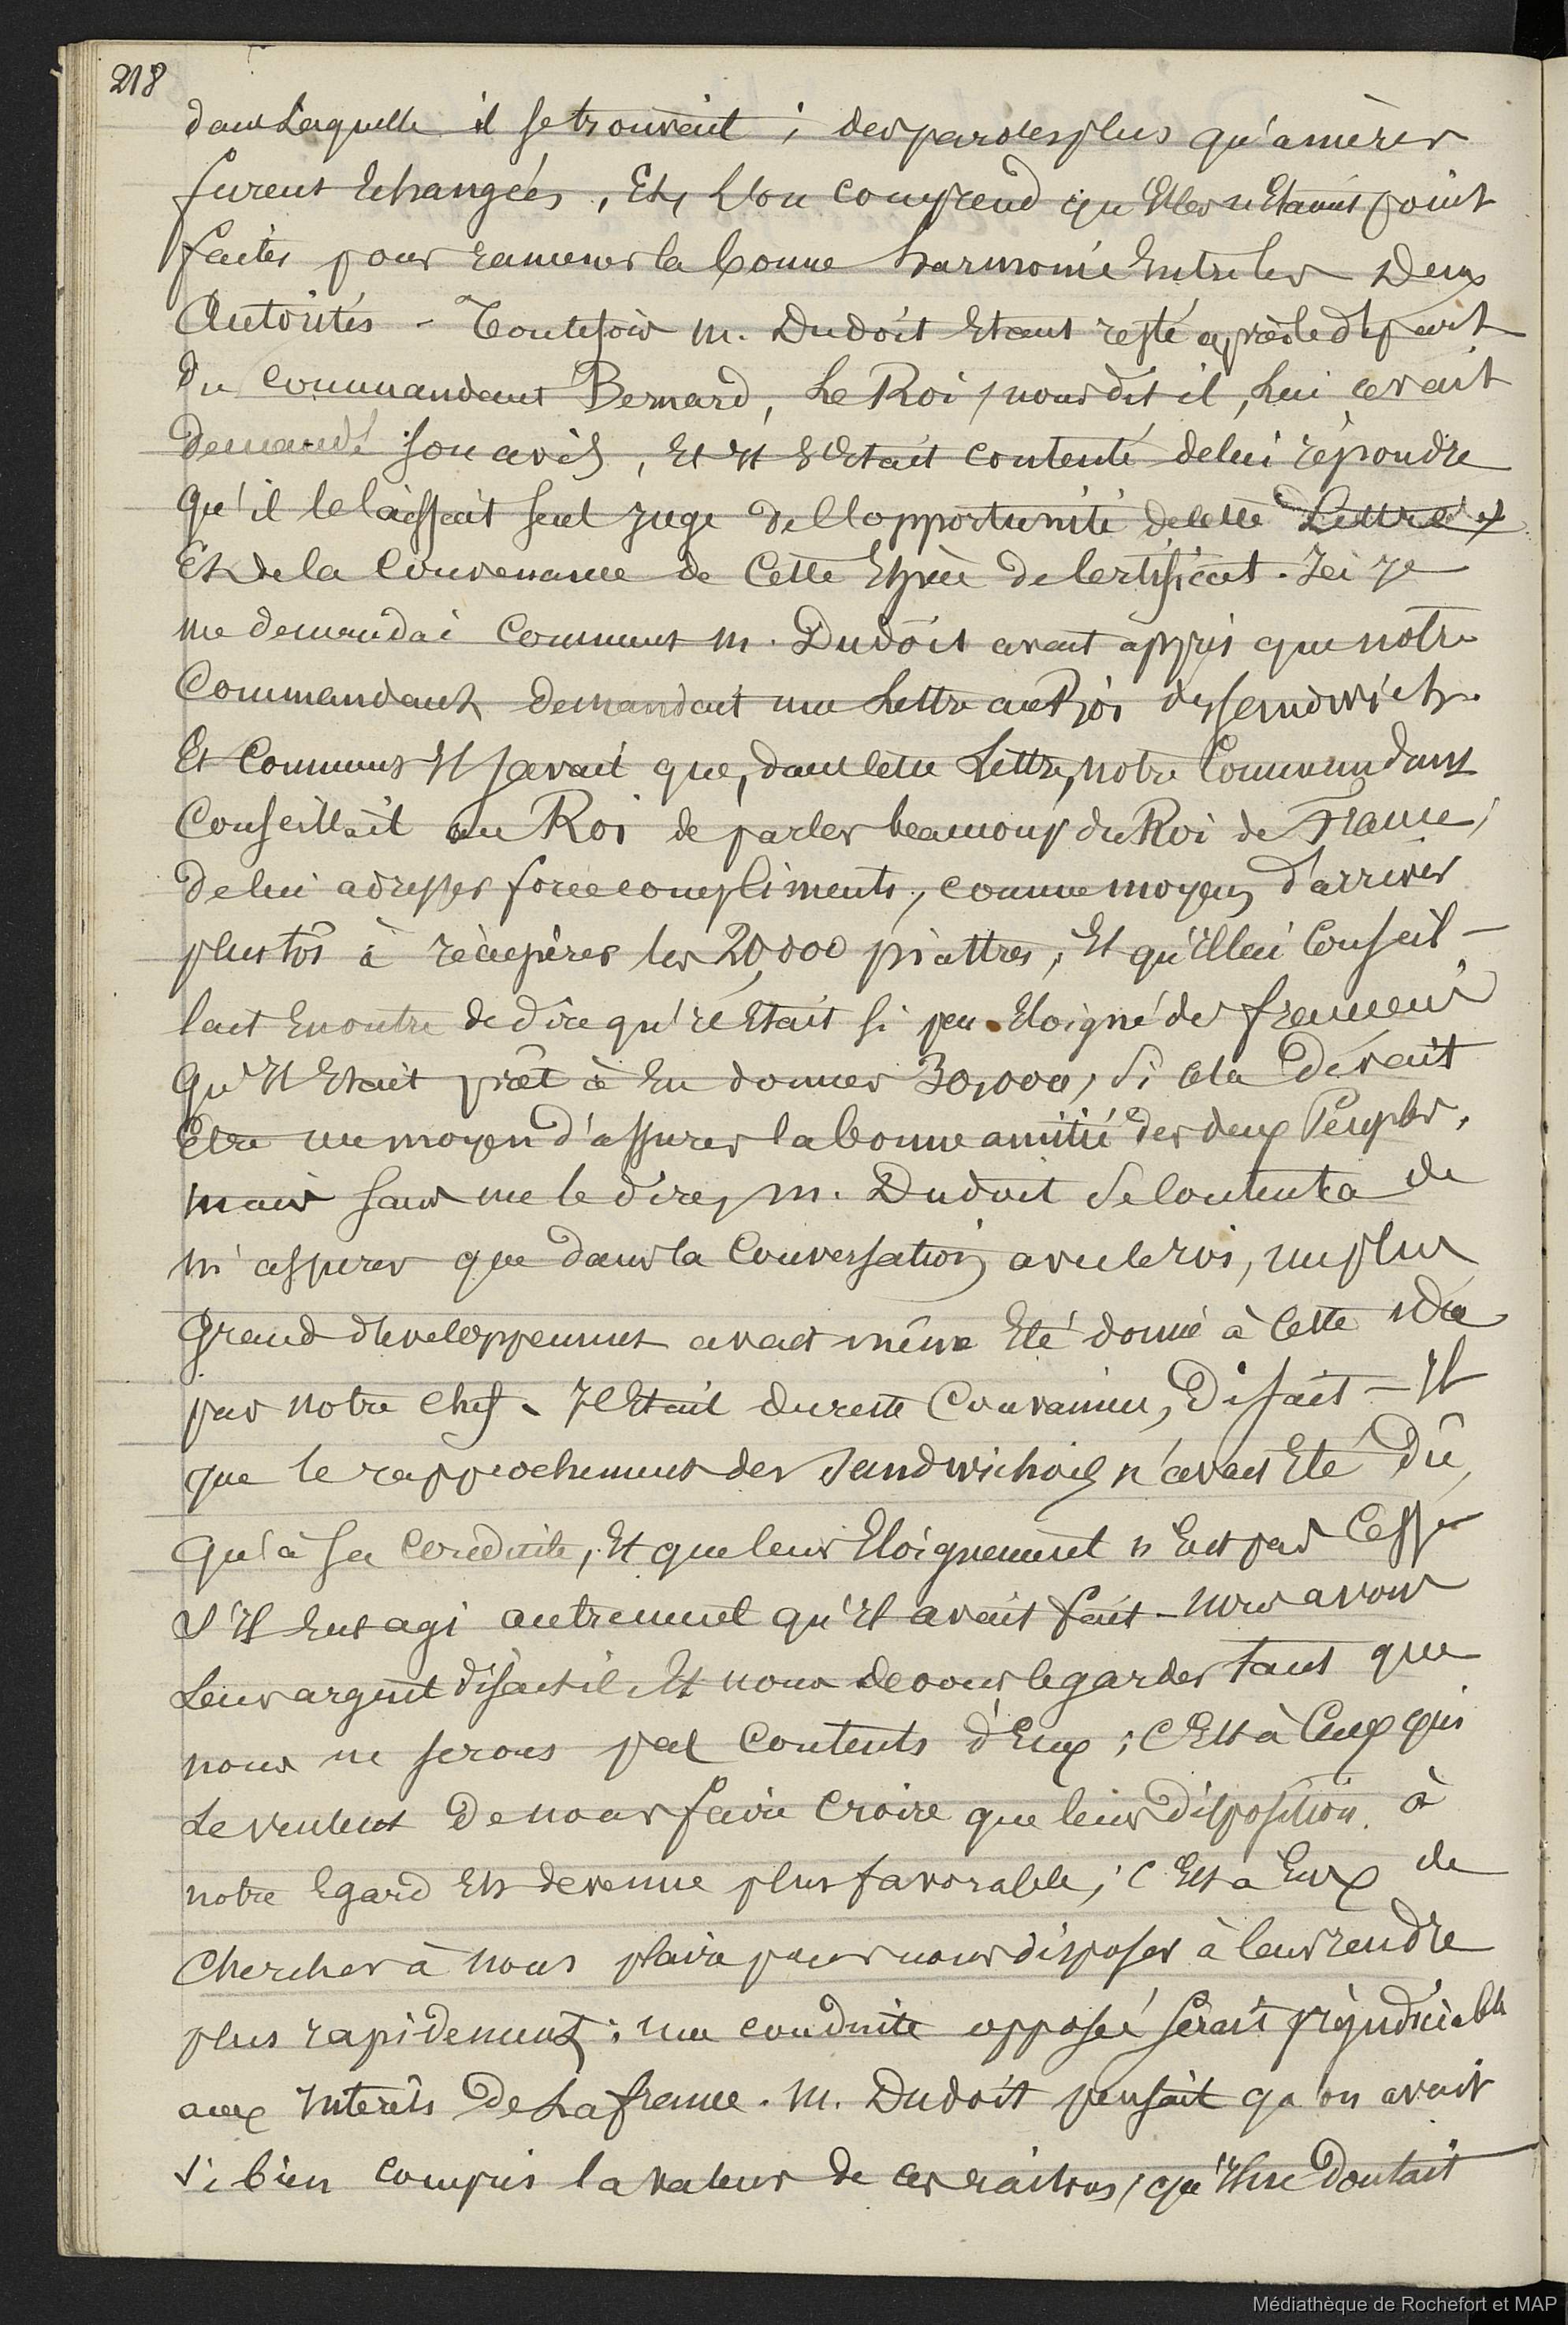 218
dans Laquelle il se trouvait ; des paroles plus qu'amères
furent Echangées, Et, l'on comprend qu'Elles n'Etaient point
faites pour ramener la bonne harmonie Entre les Deux
Autorités - Toutefois M. Dudoit Etant resté après le départ
du Commandant Bernard, Le Roi, nous dit il, Lui avait
demandé son avis, Et Il s'Etait contenté de lui répondre
qu'il le laissait seul juge de l'opportunité de cette Lettre
Et de la Convenance de Cette Espèce de Certificat. Ici je
me demandai Comment M. Dudoit avait appris que notre
Commandant demandait une Lettre au Roi des Sandwich
Et Comment Il savait que, dans cette Lettre, notre Commandant
Conseillait au Roi de parler beaucoup du Roi de France,
de lui adresser force compliments, comme moyen d'arriver
plus tôt à récupérer les 20,000 piastres, Et qu'Il lui Conseil-
lait En outre de dire qu'il Etait si peu Eloigné des francais
qu'Il Etait prêt à En donner 30,000, Si cela devait
Etre un moyen d'assurer la bonne amitié des deux Peuples.
mais sans me le dire, M. Dudoit Se Contenta de
m'assurer que dans la Conversation avec le roi, un plus
grand développement avait même Eté donné à Cette idée
par notre Chef. Il Etait du reste Convaincu, Disait-Il
que le rapprochement des Sandwichois n'avait Eté dû,
qu'à sa Conduite, Et que leur Eloignement n'Eut pas Cessé
S'Il Eut agi autrement qu'Il avait fait - nous avons
Leur argent disait il, Et nous devons le garder tant que
nous ne serons pas Contents d'Eux ; C'Est à Ceux qui
Le veulent De nous faire Croire que leur Disposition à
notre Egard Est devenue plus favorable ; C'Est à Eux de
Chercher à nous plaire pour nous disposer à leur rendre
plus rapidement ; une conduite opposée serait préjudiciable
aux Interêts De La france. M. Dudoit pensait qu'on avait
si bien Compris la valeur de ces raisons, qu'Il ne Doutait
Médiathèque de Rochefort et MAP